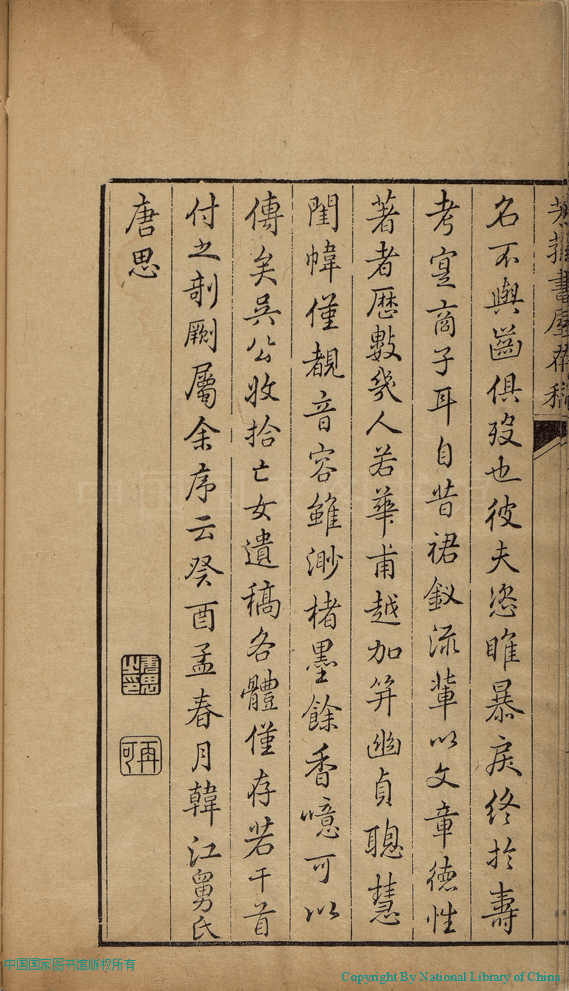 書屋存稿
名不與齒俱歿也彼夫恣睢暴戾終於壽
考寔商子耳自昔裙釵流輩以文章德性
著者歷數幾人若華甫越加笄幽貞聰慧
閨幃僅覩音容雖渺楮墨餘香噫可以
傳矣吳公收拾亡女遺稿各體僅存若干首
付之剞劂屬余序云癸酉孟春月韓江舅氏
唐思
唐思之印
再可
中国国家图书馆版权所有
Copyright By National Library of China